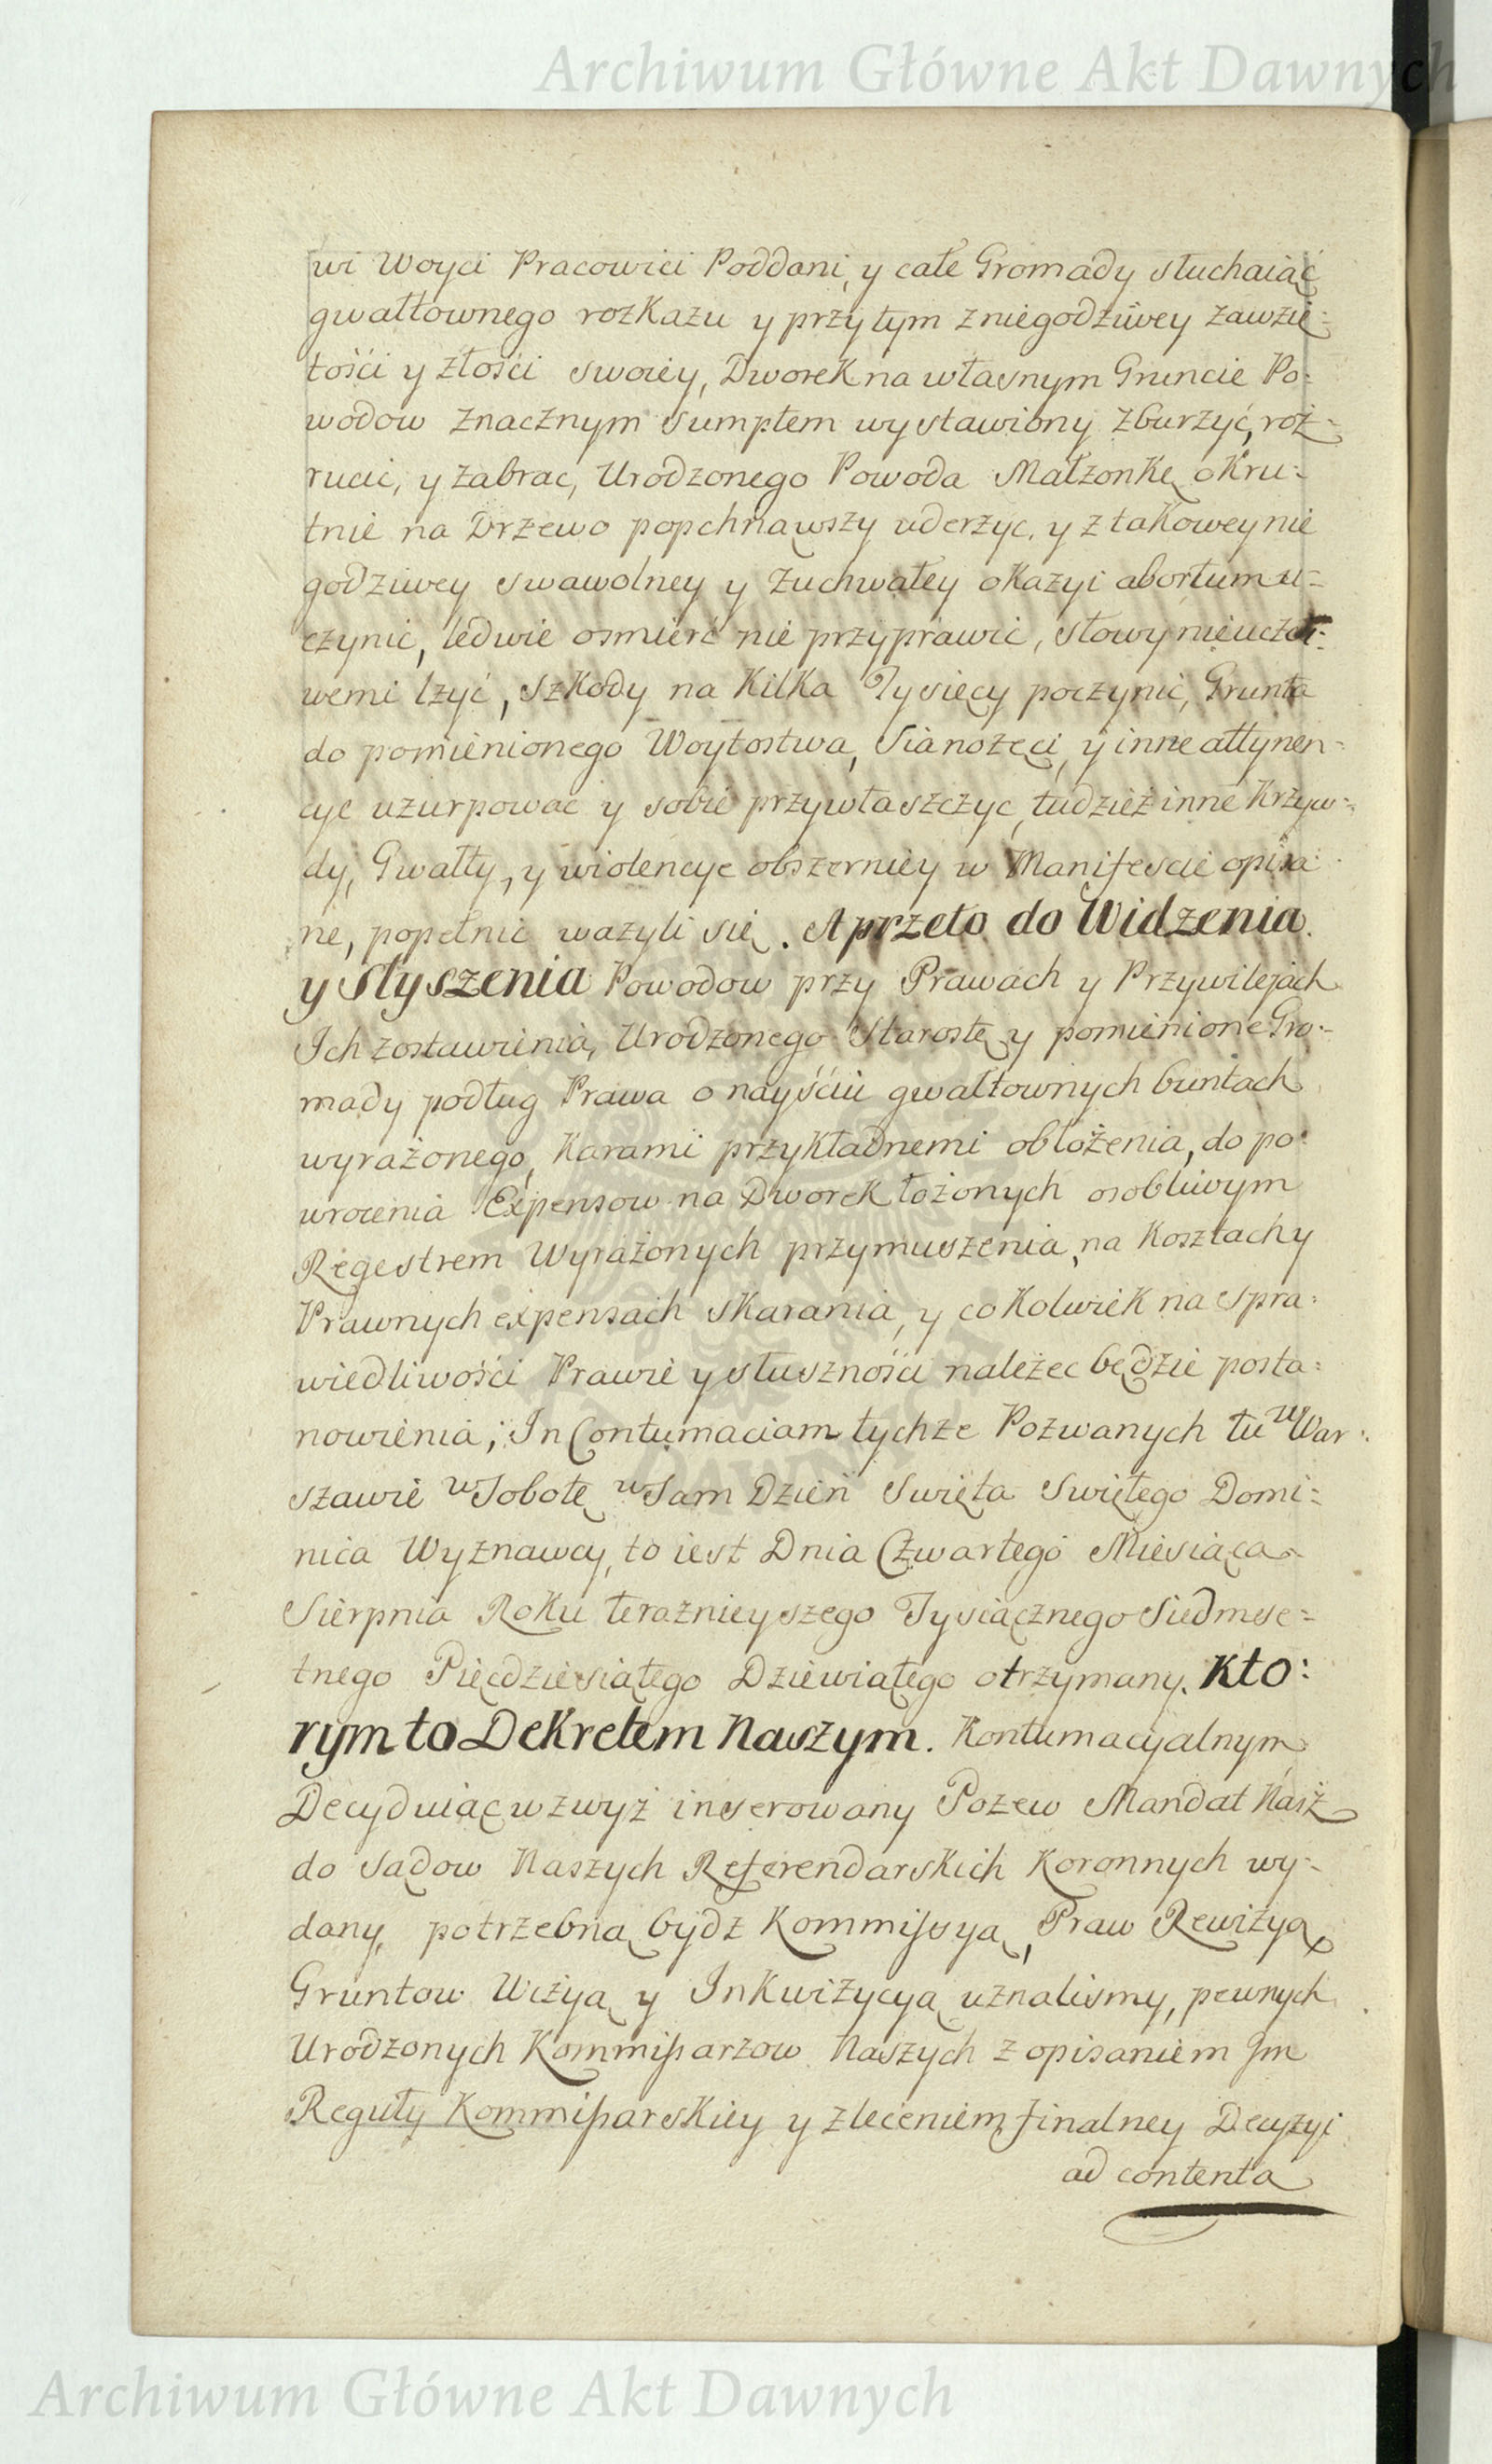 Archiwum Główne Akt Dawnych
wi Woyci Pracowici Poddani, y całe Gromady słuchaiąć
gwałtownego rozKazu y przytym z niegodźiwey zawzię:
tośći y złośći swoiey, DworeK na własnym Gruncie Po:
wodow znacznym sumptem wystawiony zburzyć, roz:
rucić, y zabrac, Urodzonego Powoda MałzonKę oKru:
tnie na Drzewo popchnąwszy uderzyc, y z taKowey nie
godziwey swawolney y zuchwałey oKazyi abortum u=
czynic, ledwie o śmierć nie przyprawić, słowy nieuczći:
wemi lzyć, szKody na KilKa Tysięcy poczynić, Grunta
do pomienionego Woytostwa, Sianozęci, y inne attynen=
cye uzurpować y sobie przywłaszczyc, tudzież inne Krzyw:
dy, Gwałty, y wiolencye obszerniey w Manifescie opisa:
ne, popełnić wazyli się. A przeto do Widzenia
y słyszenia Powodow przy Prawach y Przywilejach
Ich zostawienia, Urodzonego Starostę y pomienione Gro:
mady podług Prawa o nayśćiu gwałtownych buntach
wyrażonego, Karami przyKładnemi obłożenia, do po:
wrocenia Expensow na DworeK łożonych osobliwym
Regestrem Wyrażonych przymuszenia, na Kosztach y
Prawnych expensach sKarania, y coKolwieK na spra:
wiedliwośći Prawie y słusznośći należec będzie posta:
nowienia; In Contumaciam tychże Pozwanych tu w War:
szawie w Sobotę w Sam Dzień Swięta Swiętego Domi:
nica Wyznawcy, to iest Dnia Czwartego Miesiąca
Sierpnia RoKu teraznieyszego Tysiącznego Siedmse=
tnego Pięćdziesiątego Dziewiątego otrzymany. Kto:
rym to DeKretem Naszym. Kontumacyalnym
Decyduiąc w zwyż inserowany Pozew Mandat Nasz
do sądow Naszych ReferendarsKich Koronnych wy:
dany, potrzebną bydz Kommissyą, Praw Rewizyą
Gruntow Wizyą y InKwizycyą uznaliśmy, pewnych
Urodzonych Kommissarzow Naszych z opisaniem Jm
Reguły KommissarsKiey y zleceniem finalney Decyzyi
ad contenta
Archiwum Główne Akt Dawnych